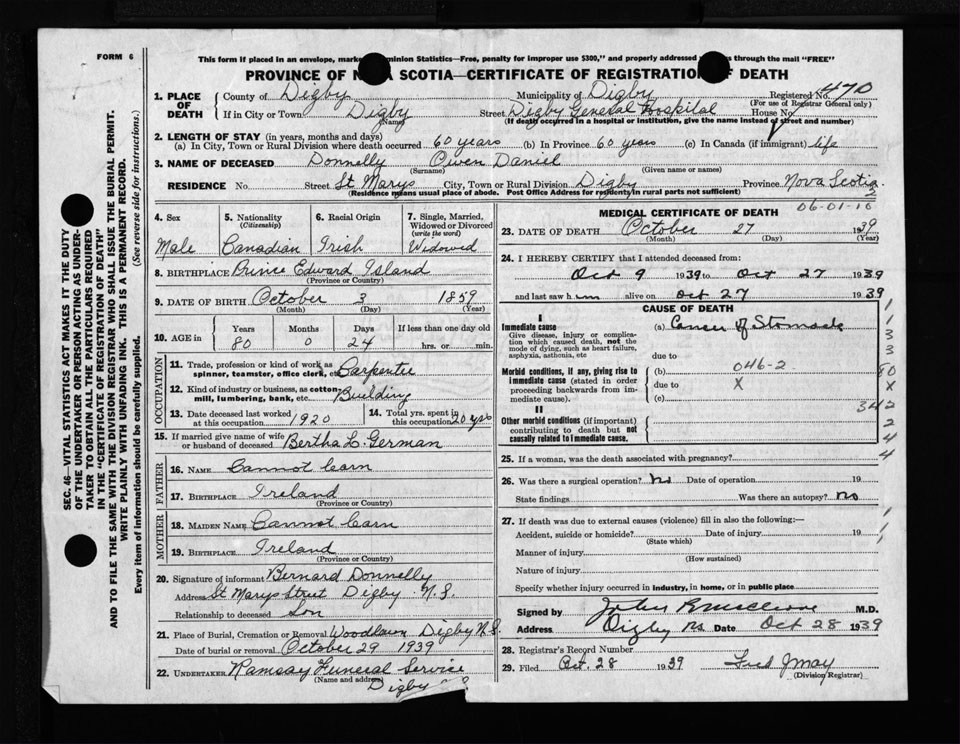 FORM 6
This form if placed in an envelope, marke minion Statistics—Free, penalty for improper use $300," and properly addressed s through the mail "FREE"
PROVINCE OF N A SCOTIA—CERTIFICATE OF REGISTRATION F DEATH
1. PLACE OF DEATH County of Digby Municipality of Digby Registered No. 470
(For use of Registrar General only)
If in City or Town Digby (Name) Street Digby General Hospital House No.
(If death occurred in a hospital or institution, give the name instead of street and number)
2. LENGTH OF STAY (in years, months and days)
(a) In City, Town or Rural Division where death occurred 60 years (b) In Province 60 years (c) In Canada (if immigrant) life
3. NAME OF DECEASED Donnelly Owen Daniel
(Surname) (Given name or names)
RESIDENCE No. Street St Marys City, Town or Rural Division Digby Province Nova Scotia
(Residence means usual place of abode. Post Office Address for residents in rural parts not sufficient)
4. Sex 5. Nationality (Citizenship) 6. Racial Origin 7. Single, Married, Widowed or Divorced (write the word)
Male Canadian Irish Widowed
8. BIRTHPLACE Prince Edward Island
(Province or Country)
9. DATE OF BIRTH October 3 1859
(Month) (Day) (Year)
10. AGE in Years Months Days If less than one day old
80 0 24 hrs. or min.
OCCUPATION
11. Trade, profession or kind of work as spinner, teamster, office clerk, etc. Carpenter
12. Kind of industry or business, as cotton-mill, lumbering, bank, etc. Building
13. Date deceased last worked at this occupation 1920 14. Total yrs. spent in this occupation 20 yrs
15. If married give name of wife or husband of deceased Bertha L. German
FATHER
16. NAME Cannot learn
17. BIRTHPLACE Ireland
(Province or Country)
MOTHER
18. MAIDEN NAME Cannot learn
19. BIRTHPLACE Ireland
(Province or Country)
20. Signature of informant Bernard Donnelly
Address St Marys Street Digby N.S.
Relationship to deceased Son
21. Place of Burial, Cremation or Removal Woodlawn Digby N.S.
Date of burial or removal October 29 1939
22. UNDERTAKER Ramsay Funeral Service
(Name and address) Digby " "
MEDICAL CERTIFICATE OF DEATH
06-01-10
23. DATE OF DEATH October 27 1939
(Month) (Day) (Year)
24. I HEREBY CERTIFY that I attended deceased from:
Oct 9 1939 to Oct 27 1939
and last saw him alive on Oct 27 1939
CAUSE OF DEATH
I
Immediate cause (a) Cancer of Stomach
Give disease, injury or complication which caused death, not the mode of dying, such as heart failure, asphyxia, asthenia, etc
due to
Morbid conditions, if any, giving rise to immediate cause (stated in order proceeding backwards from immediate cause).
(b) 046-2
due to X
(c)
II
Other morbid conditions (if important) contributing to death but not causally related to immediate cause.
342
25. If a woman, was the death associated with pregnancy?
26. Was there a surgical operation? No Date of operation 19
State findings Was there an autopsy? No
27. If death was due to external causes (violence) fill in also the following:—
Accident, suicide or homicide? Date of injury 19
(State which)
Manner of injury
(How sustained)
Nature of injury
Specify whether injury occurred in industry, in home, or in public place
Signed by M.D.
Address Digby NS. Date Oct 28 1939
28. Registrar's Record Number
29. Filed Oct. 28 1939 Fred Jmay
(Division Registrar)
SEC. 46—VITAL STATISTICS ACT MAKES IT THE DUTY
OF THE UNDERTAKER OR PERSON ACTING AS UNDER-
TAKER TO OBTAIN ALL THE PARTICULARS REQUIRED
IN THE "CERTIFICATE OF REGISTRATION OF DEATH"
AND TO FILE THE SAME WITH THE DIVISION REGISTRAR WHO SHALL ISSUE THE BURIAL PERMIT.
WRITE PLAINLY WITH UNFADING INK. THIS IS A PERMANENT RECORD.
Every item of information should be carefully supplied. (See reverse side for instructions.)